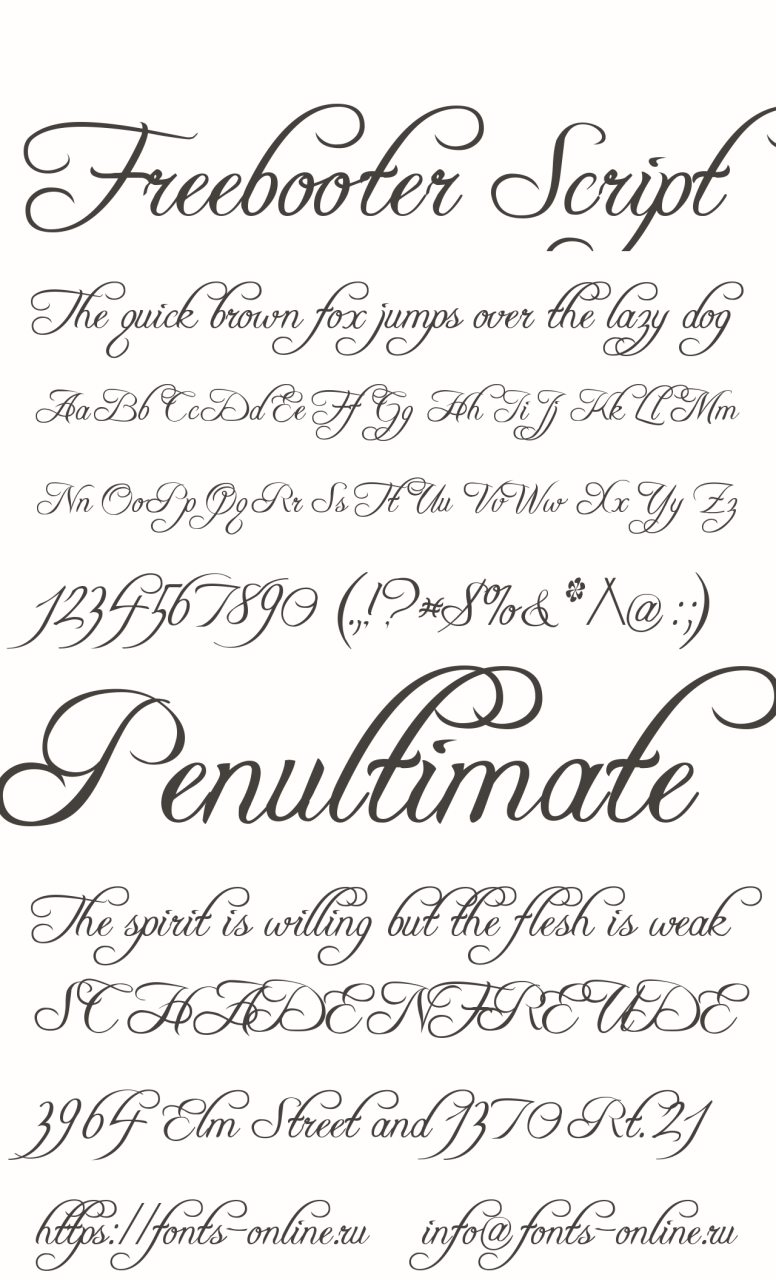 Freebooter Script
The quick brown fox jumps over the lazy dog
AaBb CcDdEeFf Gg Hh IiJj Kk LlMm
Nn OoPp QqRr SsTtUu VvWw Xx Yy Zz
1234567890 (.,!?#$%&*/\@:;)
Penultimate
The spirit is willing but the flesh is weak
SCHADENFREUDE
3964 Elm Street and 1370 Rt. 21
https://fonts-online.ru info@fonts-online.ru